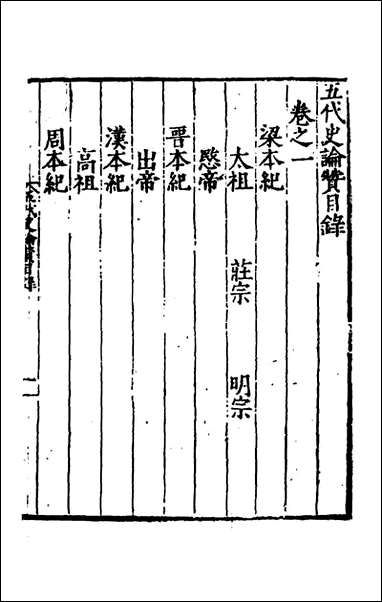 五代史論贊目錄
卷之一
梁本紀
太祖 莊宗 明宗
愍帝
晉本紀
出帝
漢本紀
高祖
周本紀
五代史論贊目錄
一